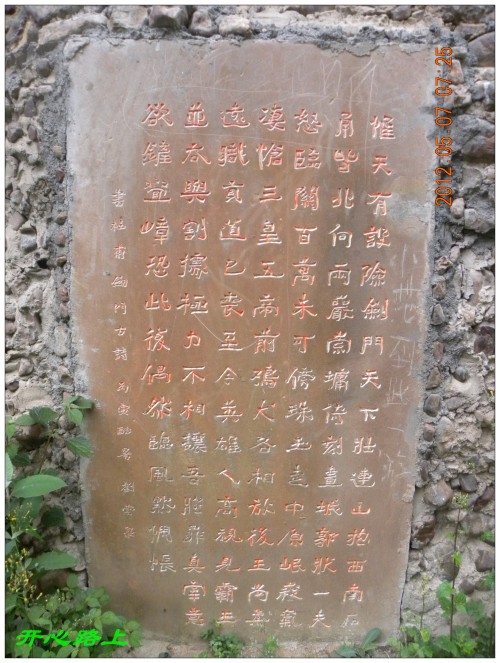 惟天有設險劍門天下壯連山抱西南石
角皆北向兩巖崇墉倚刻畫城郭狀一夫
怒臨關百萬未可傍珠玉走中原岷峨氣
淒愴三皇五帝前鷄犬各相放後王尚柔
遠職貢道已喪至今英雄人高視見霸王
並吞與割據極力不相讓吾將罪真宰意
欲鏟疊嶂恐此復偶然臨風默惆悵
書杜甫劍門古詩
2012.05.07 07:25
开心路上